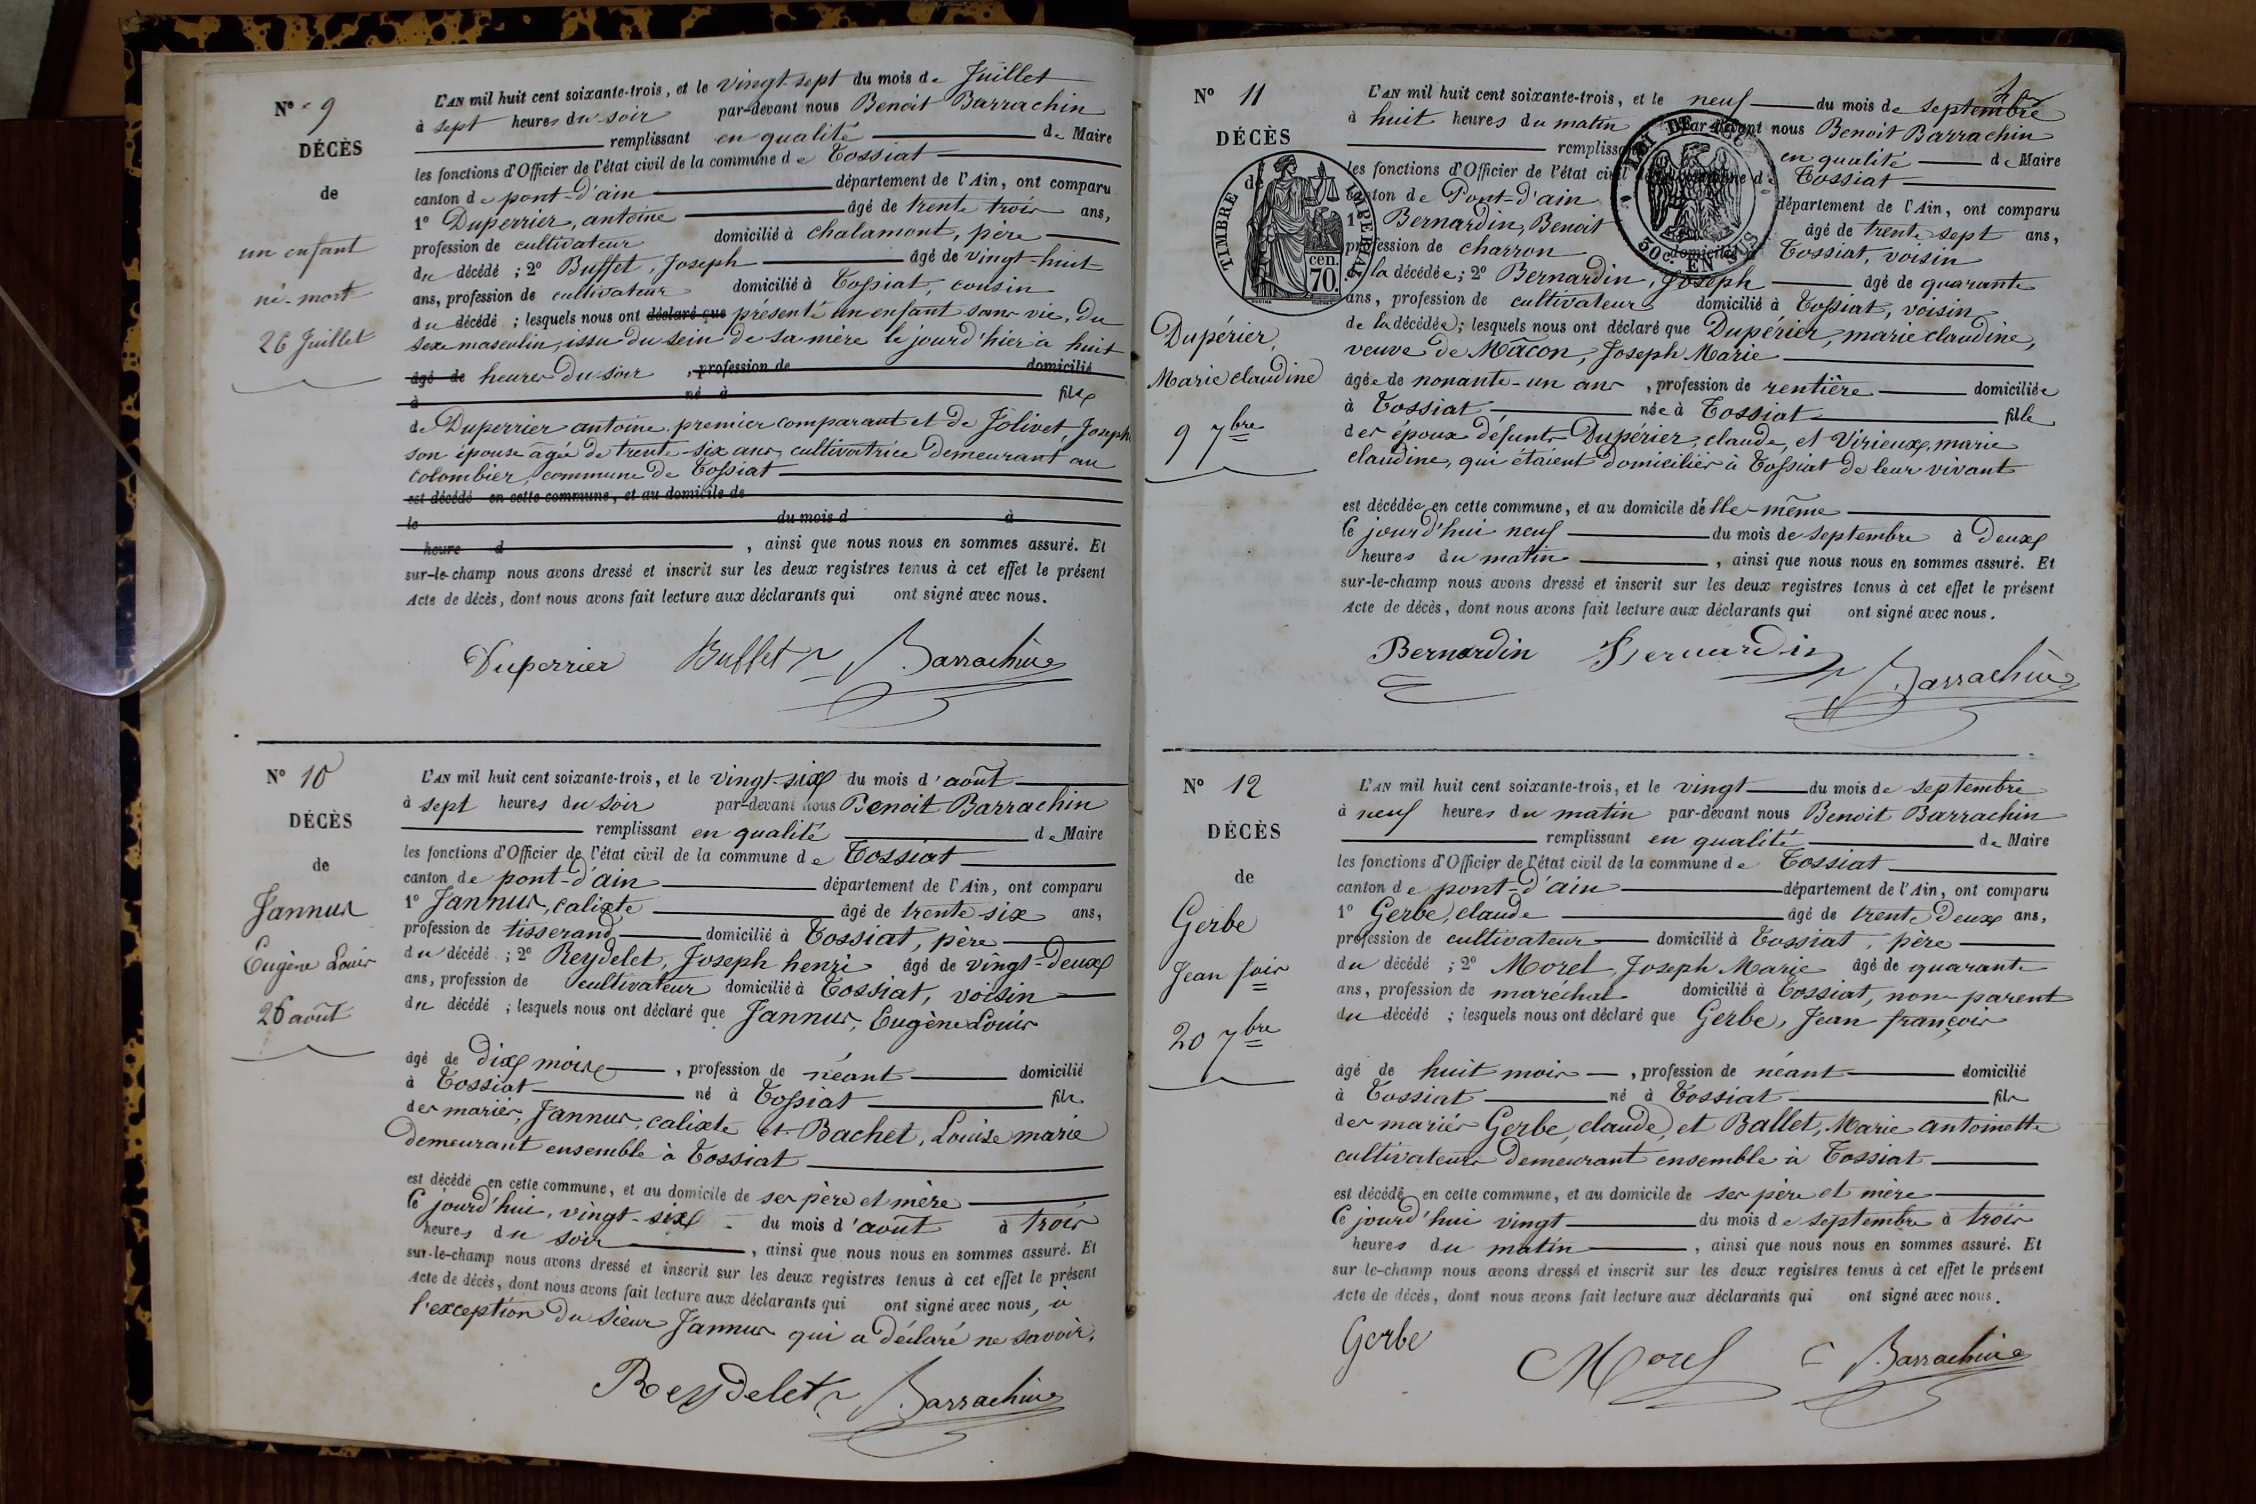 N° 9
DÉCÈS
de
un enfant
né-mort
26 Juillet
L'AN mil huit cent soixante-trois, et le vingt-sept du mois de Juillet
à sept heures du soir par-devant nous Benoit Barrachin
remplissant en qualité de Maire
les fonctions d'Officier de l'état civil de la commune de Tossiat
canton de pont-d'ain département de l'Ain, ont comparu
1° Duperrier, antoine âgé de trente trois ans,
profession de cultivateur domicilié à chalamont, père
du décédé ; 2° Buffet, Joseph âgé de vingt-huit
ans, profession de cultivateur domicilié à Tossiat, cousin
du décédé ; lesquels nous ont déclaré que présenté un enfant sans vie, du
sexe masculin, issu du sein de sa mère le jourd'hier à huit
âgé de heures du soir , profession de domicilié
à né à fils
de Duperrier antoine premier comparant et de Jolivet, Joseph
son épouse âgée de trente-six ans, cultivatrice demeurant au
colombier, commune de Tossiat
est décédé en cette commune, et au domicile de
le du mois d à
heure d , ainsi que nous nous en sommes assuré. Et
sur-le-champ nous avons dressé et inscrit sur les deux registres tenus à cet effet le présent
Acte de décès, dont nous avons fait lecture aux déclarants qui ont signé avec nous.
Duperrier Buffet Barrachin
N° 10
DÉCÈS
de
Jannus
Eugène Louis
26 août
L'AN mil huit cent soixante-trois, et le vingt-six du mois d'août
à sept heures du soir par-devant nous Benoit Barrachin
remplissant en qualité de Maire
les fonctions d'Officier de l'état civil de la commune de Tossiat
canton de pont-d'ain département de l'Ain, ont comparu
1° Jannus, calixte âgé de trente-six ans,
profession de tisserand domicilié à Tossiat, père
du décédé ; 2° Reydelet, Joseph henri âgé de vingt-deux
ans, profession de cultivateur domicilié à Tossiat, voisin
du décédé ; lesquels nous ont déclaré que Jannus, Eugène Louis
âgé de dix mois , profession de néant domicilié
à Tossiat né à Tossiat fils
des mariés, Jannus, calixte et Bachet, Louise marie
demeurant ensemble à Tossiat
est décédé en cette commune, et au domicile de ses père et mère
ce jourd'hui, vingt-six du mois d'août à trois
heures du soir , ainsi que nous nous en sommes assuré. Et
sur-le-champ nous avons dressé et inscrit sur les deux registres tenus à cet effet le présent
Acte de décès, dont nous avons fait lecture aux déclarants qui ont signé avec nous, à
l'exception du sieur Jannus qui a déclaré ne savoir.
Reydelet Barrachin
N° 11
DÉCÈS
de
TIMBRE IMPERIAL
cen.
70.
Dupérier,
Marie claudine
9 7bre
50c. EN SUS
L'AN mil huit cent soixante-trois, et le neuf du mois de septembre
à huit heures du matin par-devant nous Benoit Barrachin
remplissant en qualité de Maire
les fonctions d'Officier de l'état civil de la commune de Tossiat
canton de Pont-d'ain département de l'Ain, ont comparu
1° Bernardin, Benoit âgé de trente sept ans,
profession de charron domicilié à Tossiat, voisin
de la décédée ; 2° Bernardin, Joseph âgé de quarante
ans, profession de cultivateur domicilié à Tossiat, voisin
de la décédée ; lesquels nous ont déclaré que Dupérier, marie claudine,
veuve de Mâcon, Joseph Marie
âgée de nonante-un ans , profession de rentière domiciliée
à Tossiat née à Tossiat fille
des époux défunts Dupérier, claude, et Virieux, marie
claudine, qui étaient domiciliés à Tossiat de leur vivant
est décédée en cette commune, et au domicile d'elle-même
ce jourd'hui neuf du mois de septembre à deux
heures du matin , ainsi que nous nous en sommes assuré. Et
sur-le-champ nous avons dressé et inscrit sur les deux registres tenus à cet effet le présent
Acte de décès, dont nous avons fait lecture aux déclarants qui ont signé avec nous.
Bernardin Bernardin Barrachin
N° 12
DÉCÈS
de
Gerbe
Jean fois
20 7bre
L'AN mil huit cent soixante-trois, et le vingt du mois de septembre
à neuf heures du matin par-devant nous Benoit Barrachin
remplissant en qualité de Maire
les fonctions d'Officier de l'état civil de la commune de Tossiat
canton de pont-d'ain département de l'Ain, ont comparu
1° Gerbe, claude âgé de trente deux ans,
profession de cultivateur domicilié à Tossiat, père
du décédé ; 2° Morel, Joseph Marie âgé de quarante
ans, profession de maréchal domicilié à Tossiat, non parent
du décédé ; lesquels nous ont déclaré que Gerbe, Jean françois
âgé de huit mois , profession de néant domicilié
à Tossiat né à Tossiat fils
des mariés Gerbe, claude, et Ballet, Marie antoinette
cultivateurs demeurant ensemble à Tossiat
est décédé en cette commune, et au domicile de ses père et mère
ce jourd'hui vingt du mois de septembre à trois
heures du matin , ainsi que nous nous en sommes assuré. Et
sur le-champ nous avons dressé et inscrit sur les deux registres tenus à cet effet le présent
Acte de décès, dont nous avons fait lecture aux déclarants qui ont signé avec nous.
Gerbe Morel Barrachin